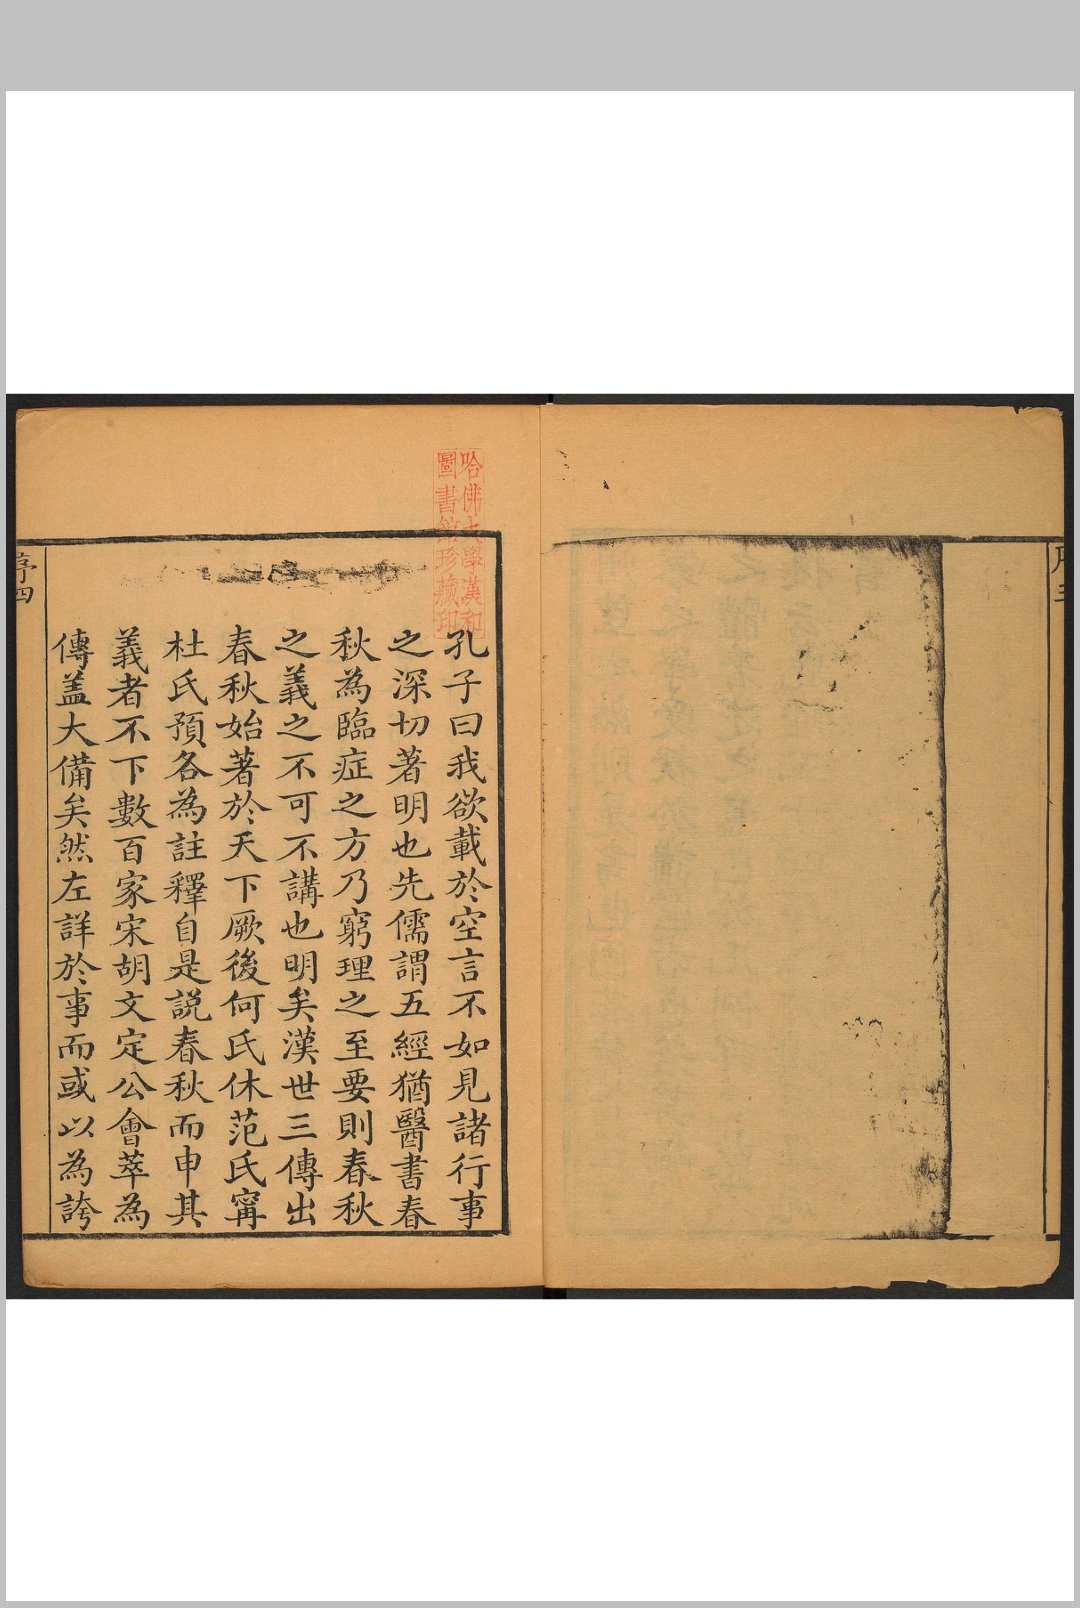 孔子曰我欲載於空言不如見諸行事
之深切著明也先儒謂五經猶醫書春
秋為臨症之方乃窮理之至要則春秋
之義之不可不講也明矣漢世三傳出
春秋始著於天下厥後何氏休范氏甯
杜氏預各為註釋自是説春秋而申其
義者不下數百家宋胡文定公會萃為
傳盖大備矣然左詳於事而或以為誇
序四
哈佛大學漢和
圖書館珍藏印